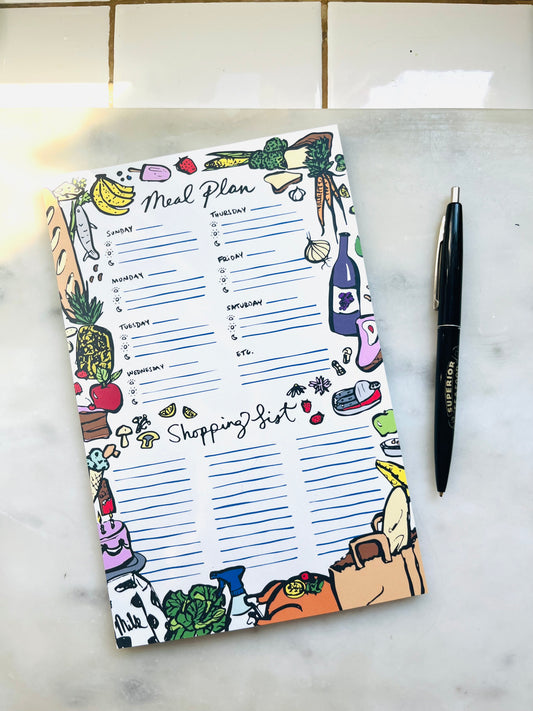 Meal Plan
SUNDAY
MONDAY
TUESDAY
WEDNESDAY
THURSDAY
FRIDAY
SATURDAY
ETC.
Shopping List
Milk
SUPERIOR